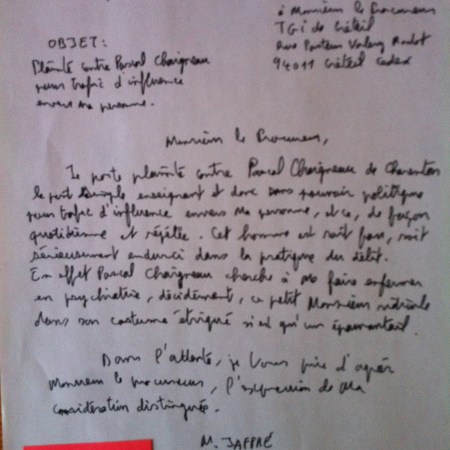 à Monsieur le Procureur
TGI de Créteil
Rue Pasteur Valery Radot
94011 Créteil Cedex
OBJET:
Plainte contre Pascal Chaigneau
pour trafic d'influence
envers ma personne.
Monsieur le Procureur,
Je porte plainte contre Pascal Chaigneau de Charenton
le pont simple enseignant et donc sans pouvoir politique
pour trafic d'influence envers ma personne, et ce, de façon
quotidienne et répétée. Cet homme est soit fou, soit
sérieusement endurci dans la pratique du délit.
En effet Pascal Chaigneau cherche à me faire enfermer
en psychiatrie, décidément, ce petit Monsieur ridicule
dans son costume étriqué n'est qu'un épouvantail.
Dans l'attente, je vous prie d'agréer
Monsieur le procureur, l'expression de ma
considération distinguée.
M. JAFFRÉ